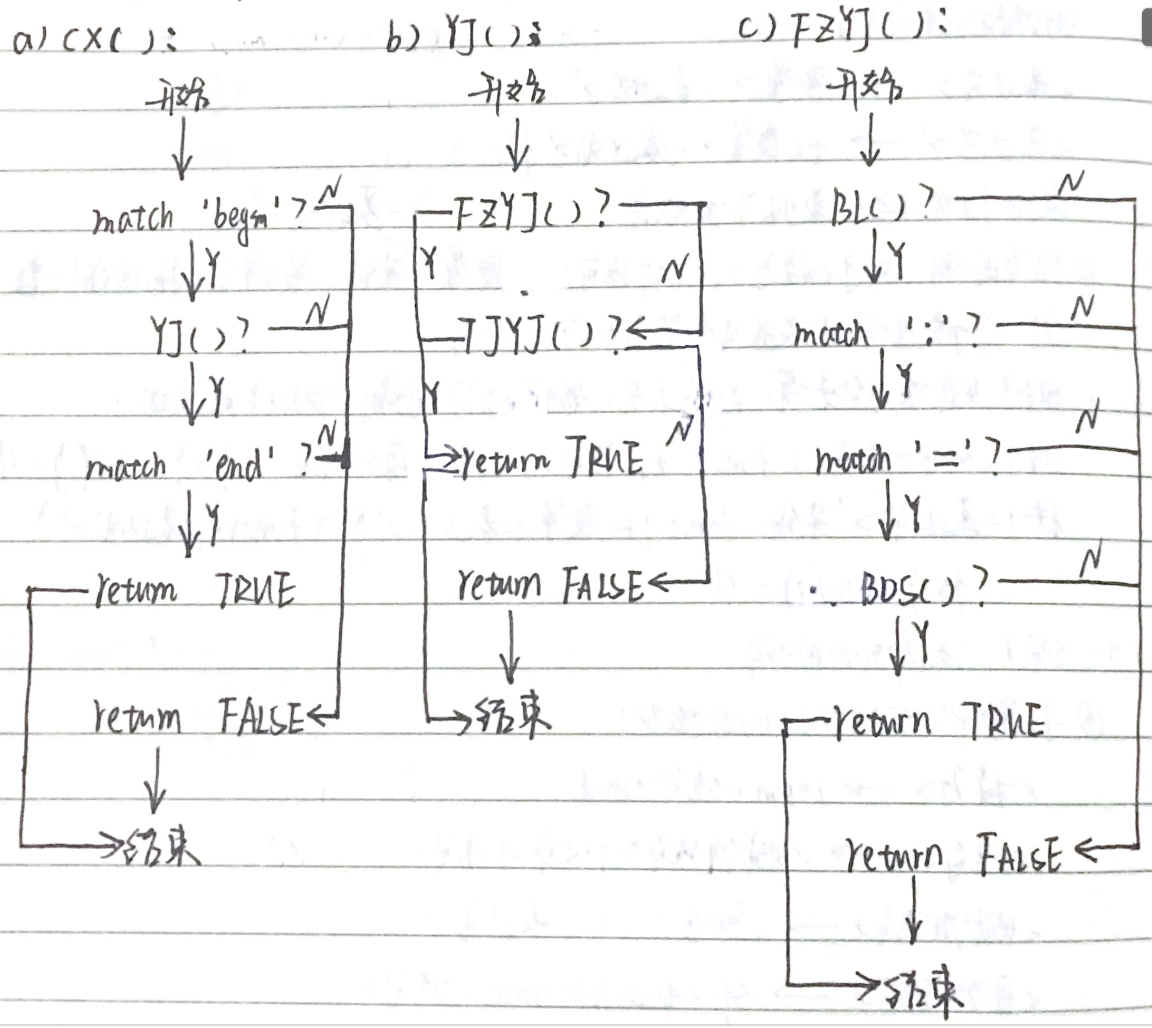 a) CX( ):
开始
match 'begin'? N
Y
YJ()? N
Y
match 'end'? N
Y
return TRUE
return FALSE
结束
b) YJ():
开始
FZYJ()?
Y N
TJYJ()?
Y N
return TRUE
return FALSE
结束
c) FZYJ():
开始
BL()? N
Y
match ':'? N
Y
match '='? N
Y
BDS()? N
Y
return TRUE
return FALSE
结束